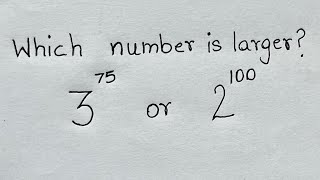 Which number is larger?
3^75 or 2^100